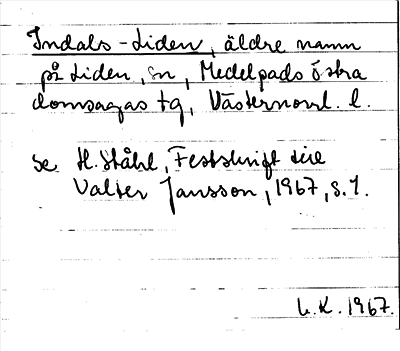 Indals-Liden, äldre namn
på Liden, sn, Medelpads östra
domsagas tg, Västernorrl. l.
se H. Ståhl, Festskrift till
Valter Jansson, 1967, s. 1.
L. K. 1967.